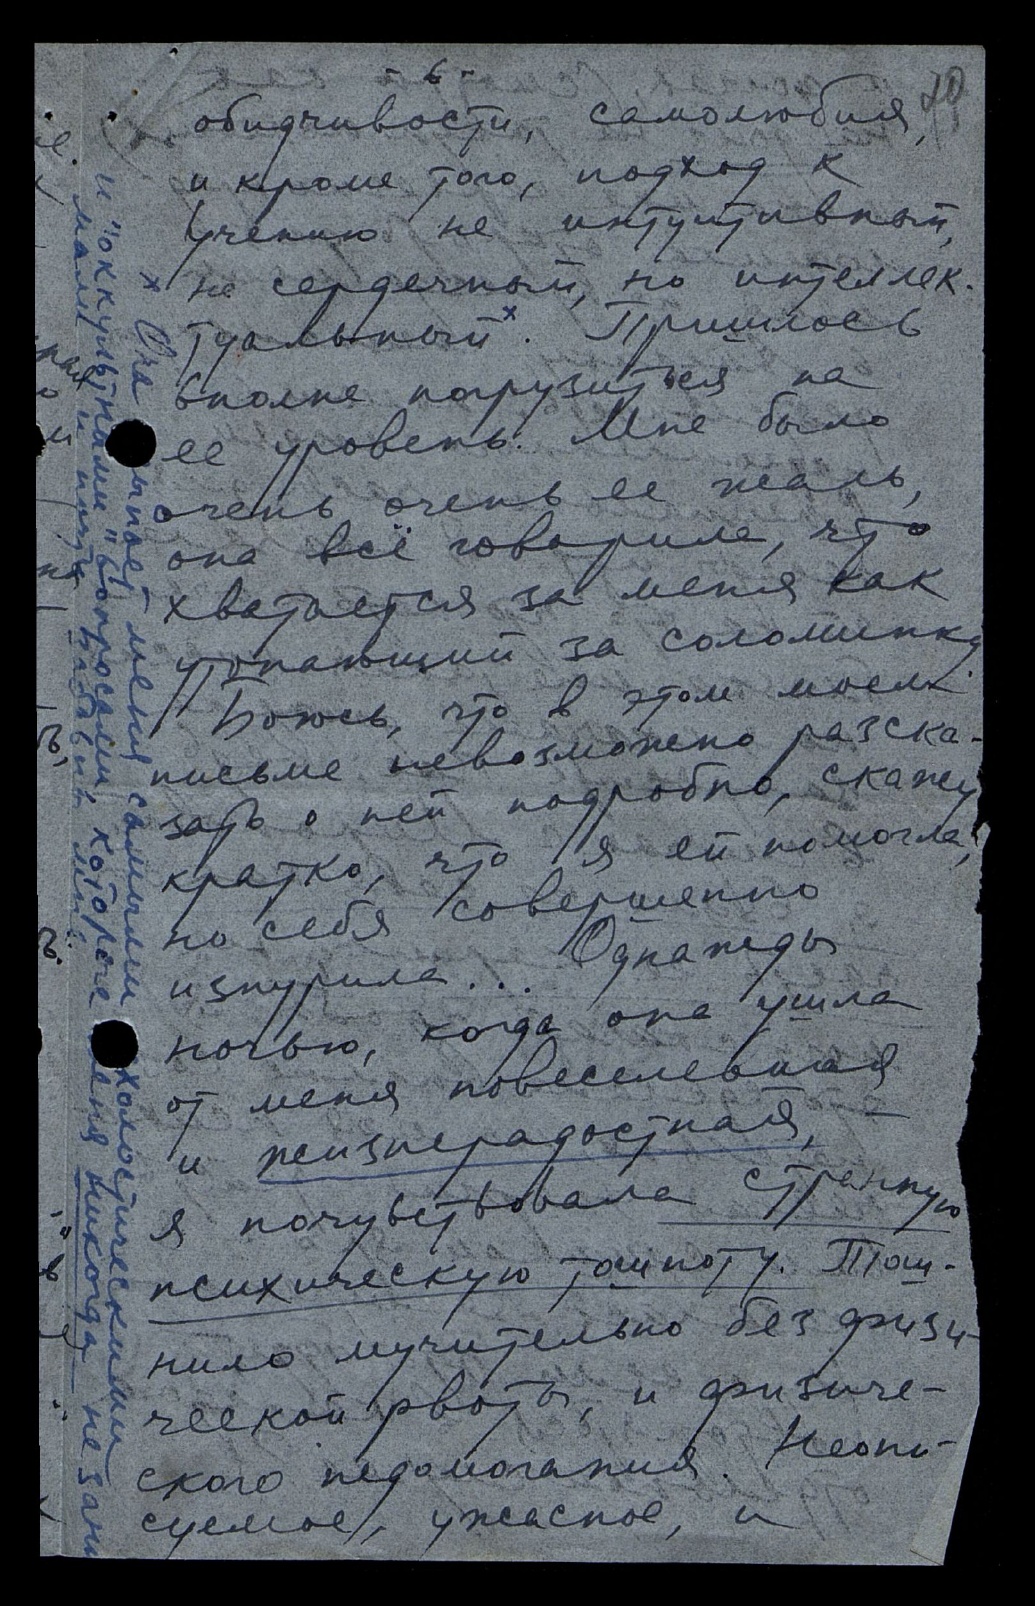 - 6 -
обидчивости, самолюбия,
и кроме того, подход к
Учению не интуитивный,
не сердечный, но интеллек-
туальный х. Пришлось
вполне погрузиться на
ее уровень. Мне было
очень очень ее жаль,
она всё говорила, что
хватается за меня как
утопающий за соломинку
Боюсь, что в этом моем
письме невозможно разска-
зать о ней подробно, скажу
кратко, что я ей помогла,
но себя совершенно
изнурила... Однажды
ночью, когда она ушла
от меня повеселевшая
и жизнерадостная, –
я почувствовала странную
психическую тошноту. Тош-
нило мучительно без физи-
ческой рвоты, и физиче-
ского недомогания. Неопи-
суемое, ужасное, и
х Она меня самыми схоластическими
и "оккультными" вопросами, которые меня никогда не зани
мали и